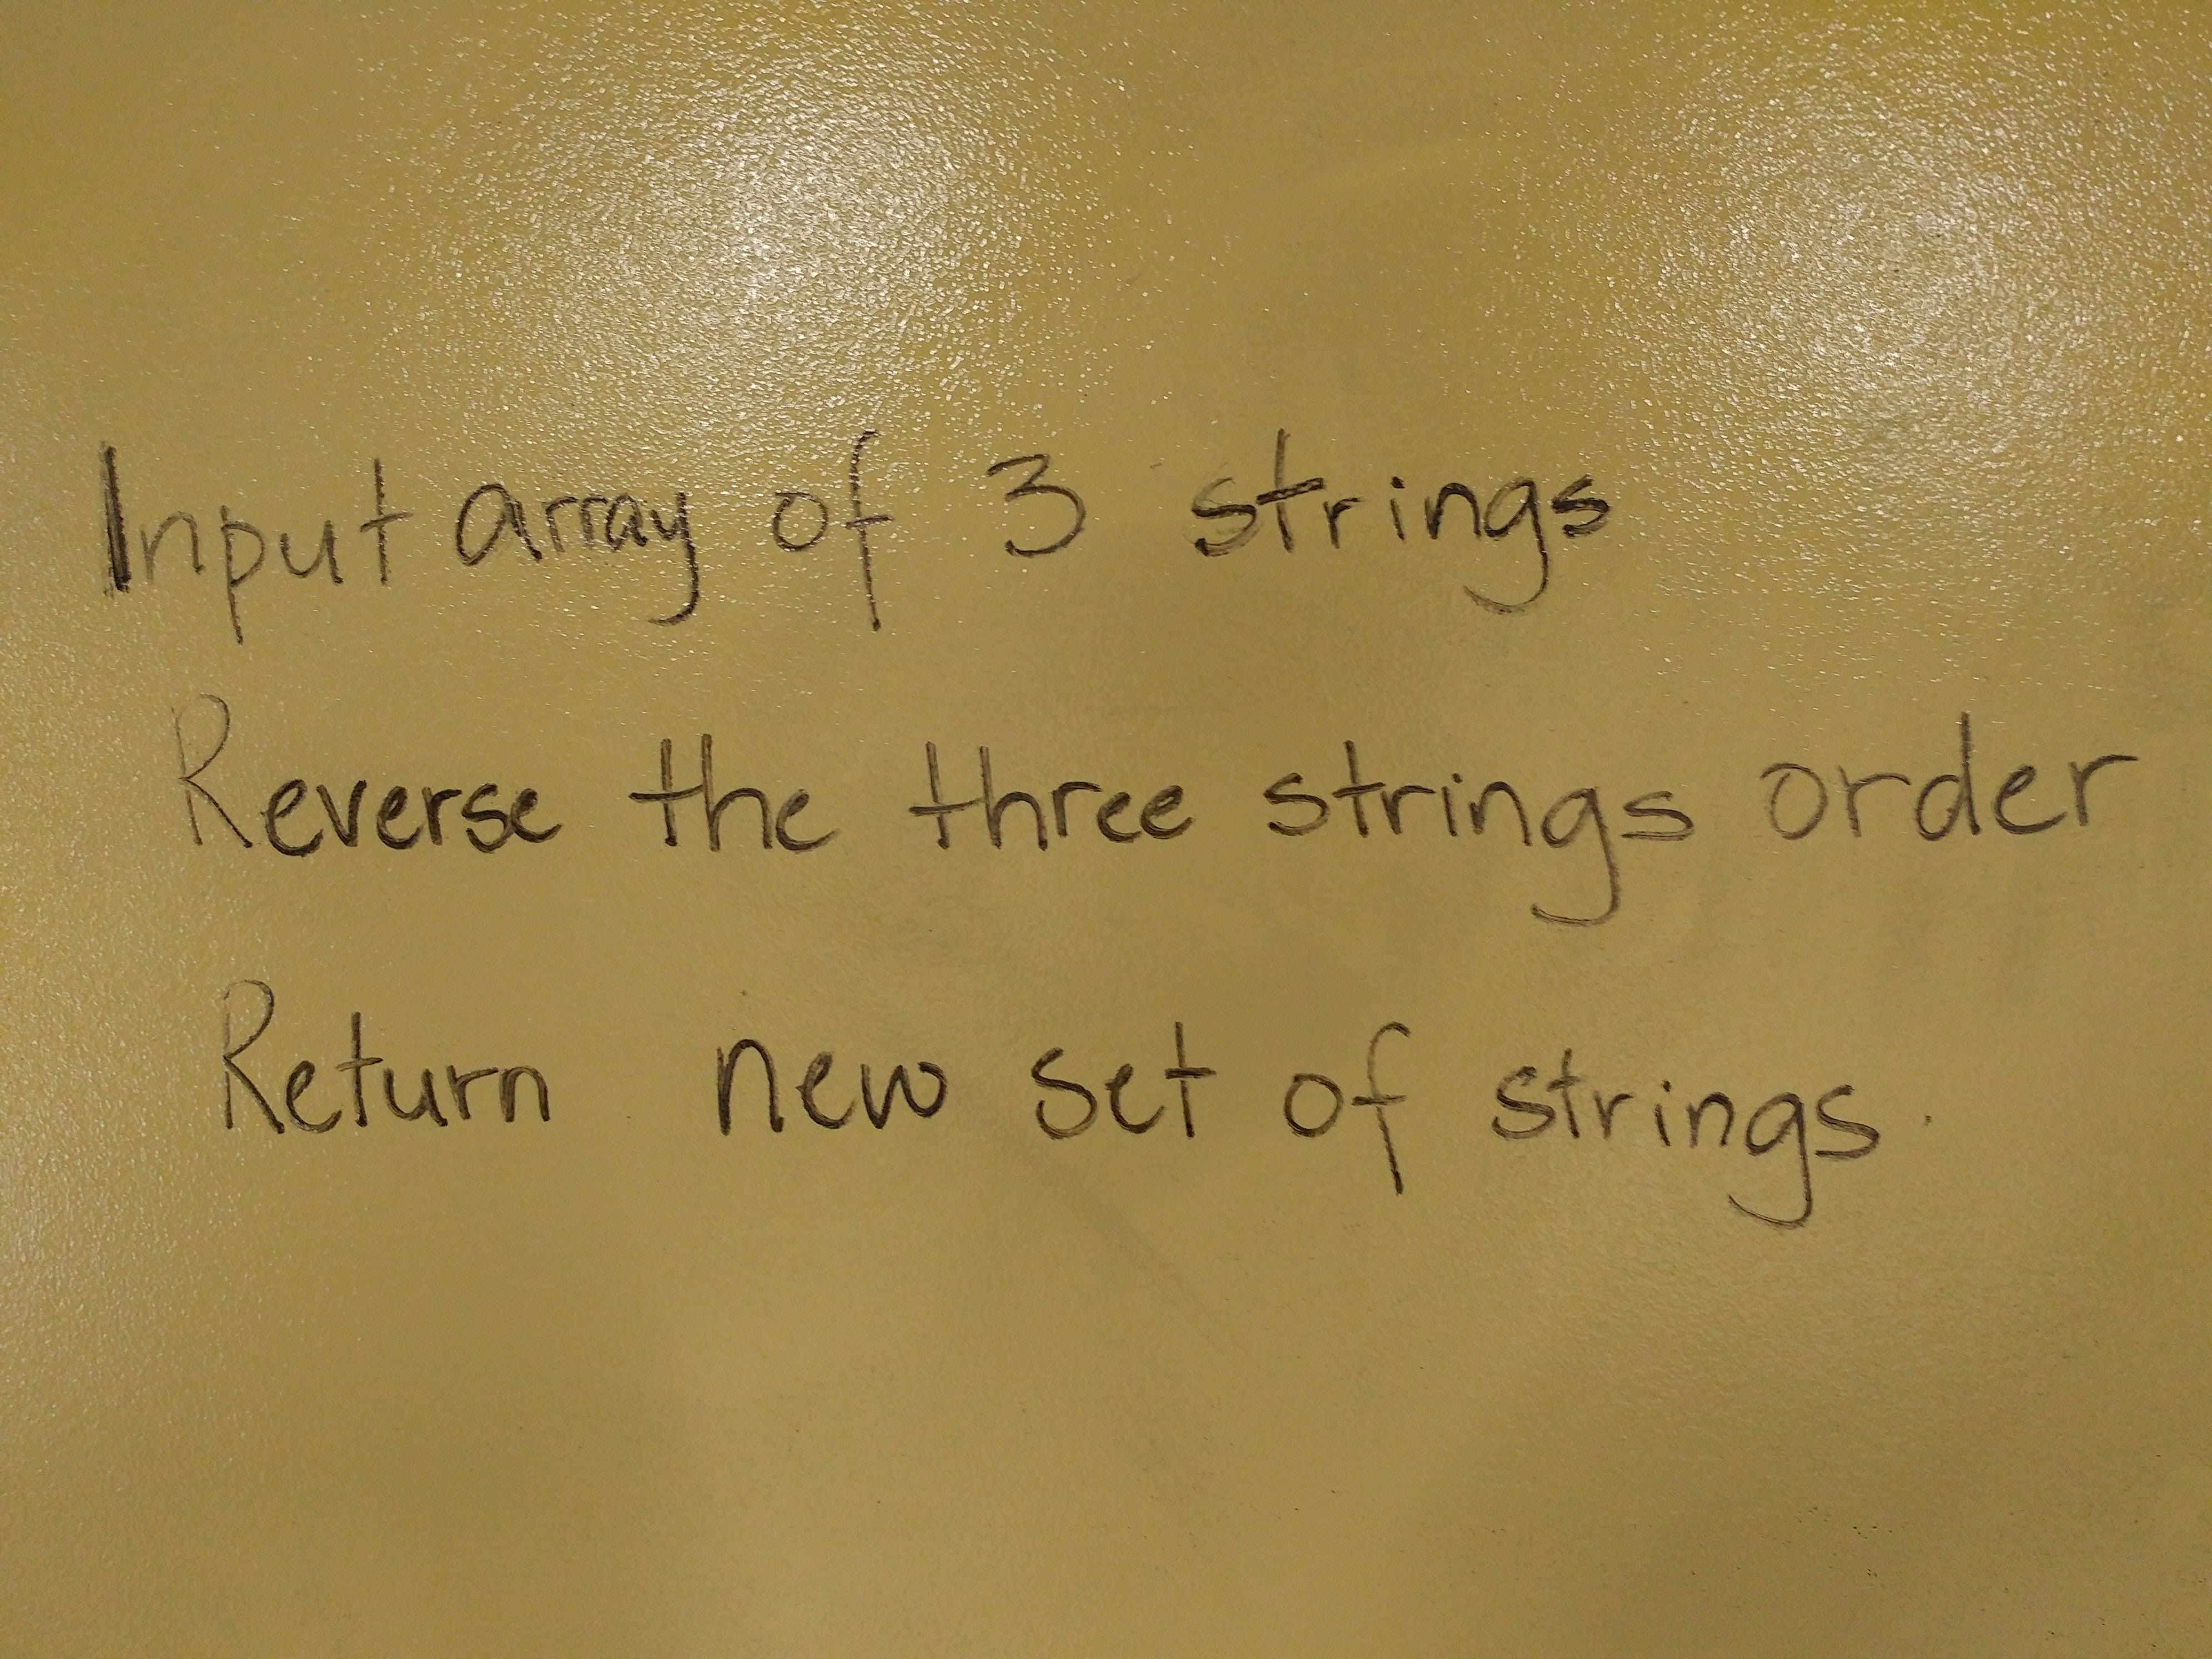 Input array of 3 strings
Reverse the three strings order
Return new set of strings.